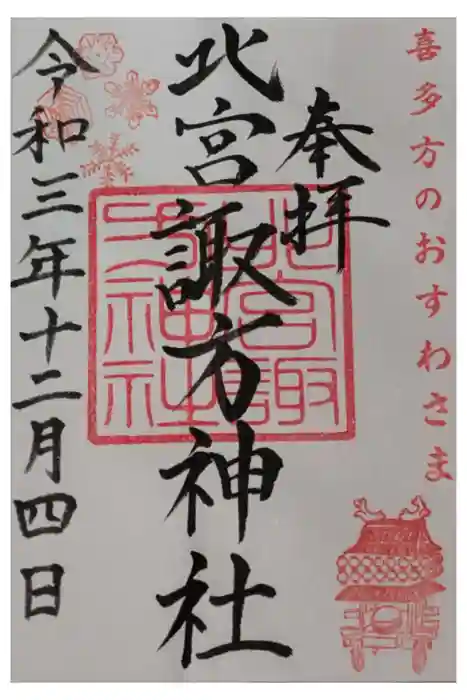 喜多方のおすわさま
奉拝
北宮諏方神社
北宮諏方神社
令和三年十二月四日